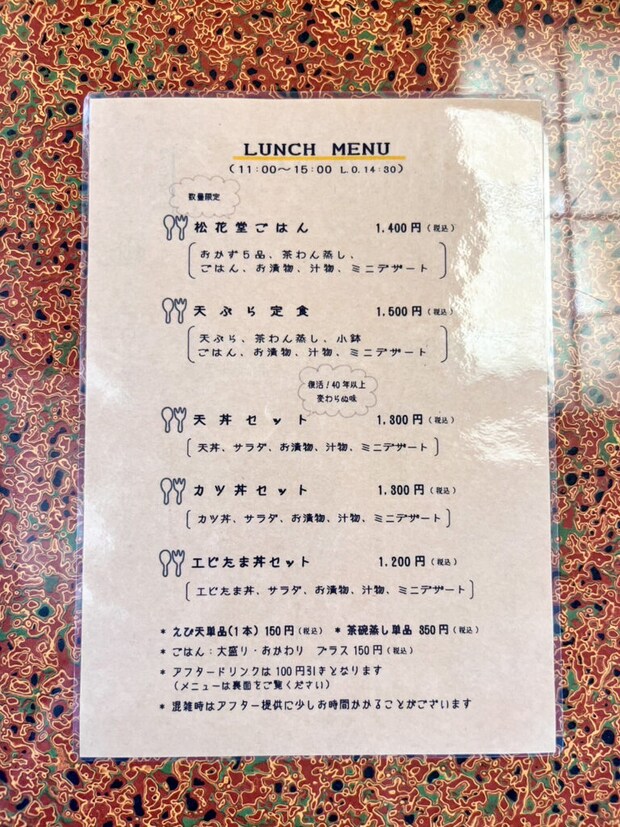 LUNCH MENU
(11:00〜15:00 L.O.14:30)
数量限定
松花堂ごはん 1.400円(税込)
おかず5品、茶わん蒸し、
ごはん、お漬物、汁物、ミニデザート
天ぷら定食 1.500円(税込)
天ぷら、茶わん蒸し、小鉢
ごはん、お漬物、汁物、ミニデザート
復活!40年以上
変わらぬ味
天丼セット 1.300円(税込)
天丼、サラダ、お漬物、汁物、ミニデザート
カツ丼セット 1.300円(税込)
カツ丼、サラダ、お漬物、汁物、ミニデザート
エビたま丼セット 1.200円(税込)
エビたま丼、サラダ、お漬物、汁物、ミニデザート
* えび天単品(1本) 150円(税込) * 茶碗蒸し単品 350円(税込)
* ごはん:大盛り・おかわり プラス150円(税込)
* アフタードリンクは100円引きとなります
(メニューは裏面をご覧ください)
* 混雑時はアフター提供に少しお時間がかかることがございます